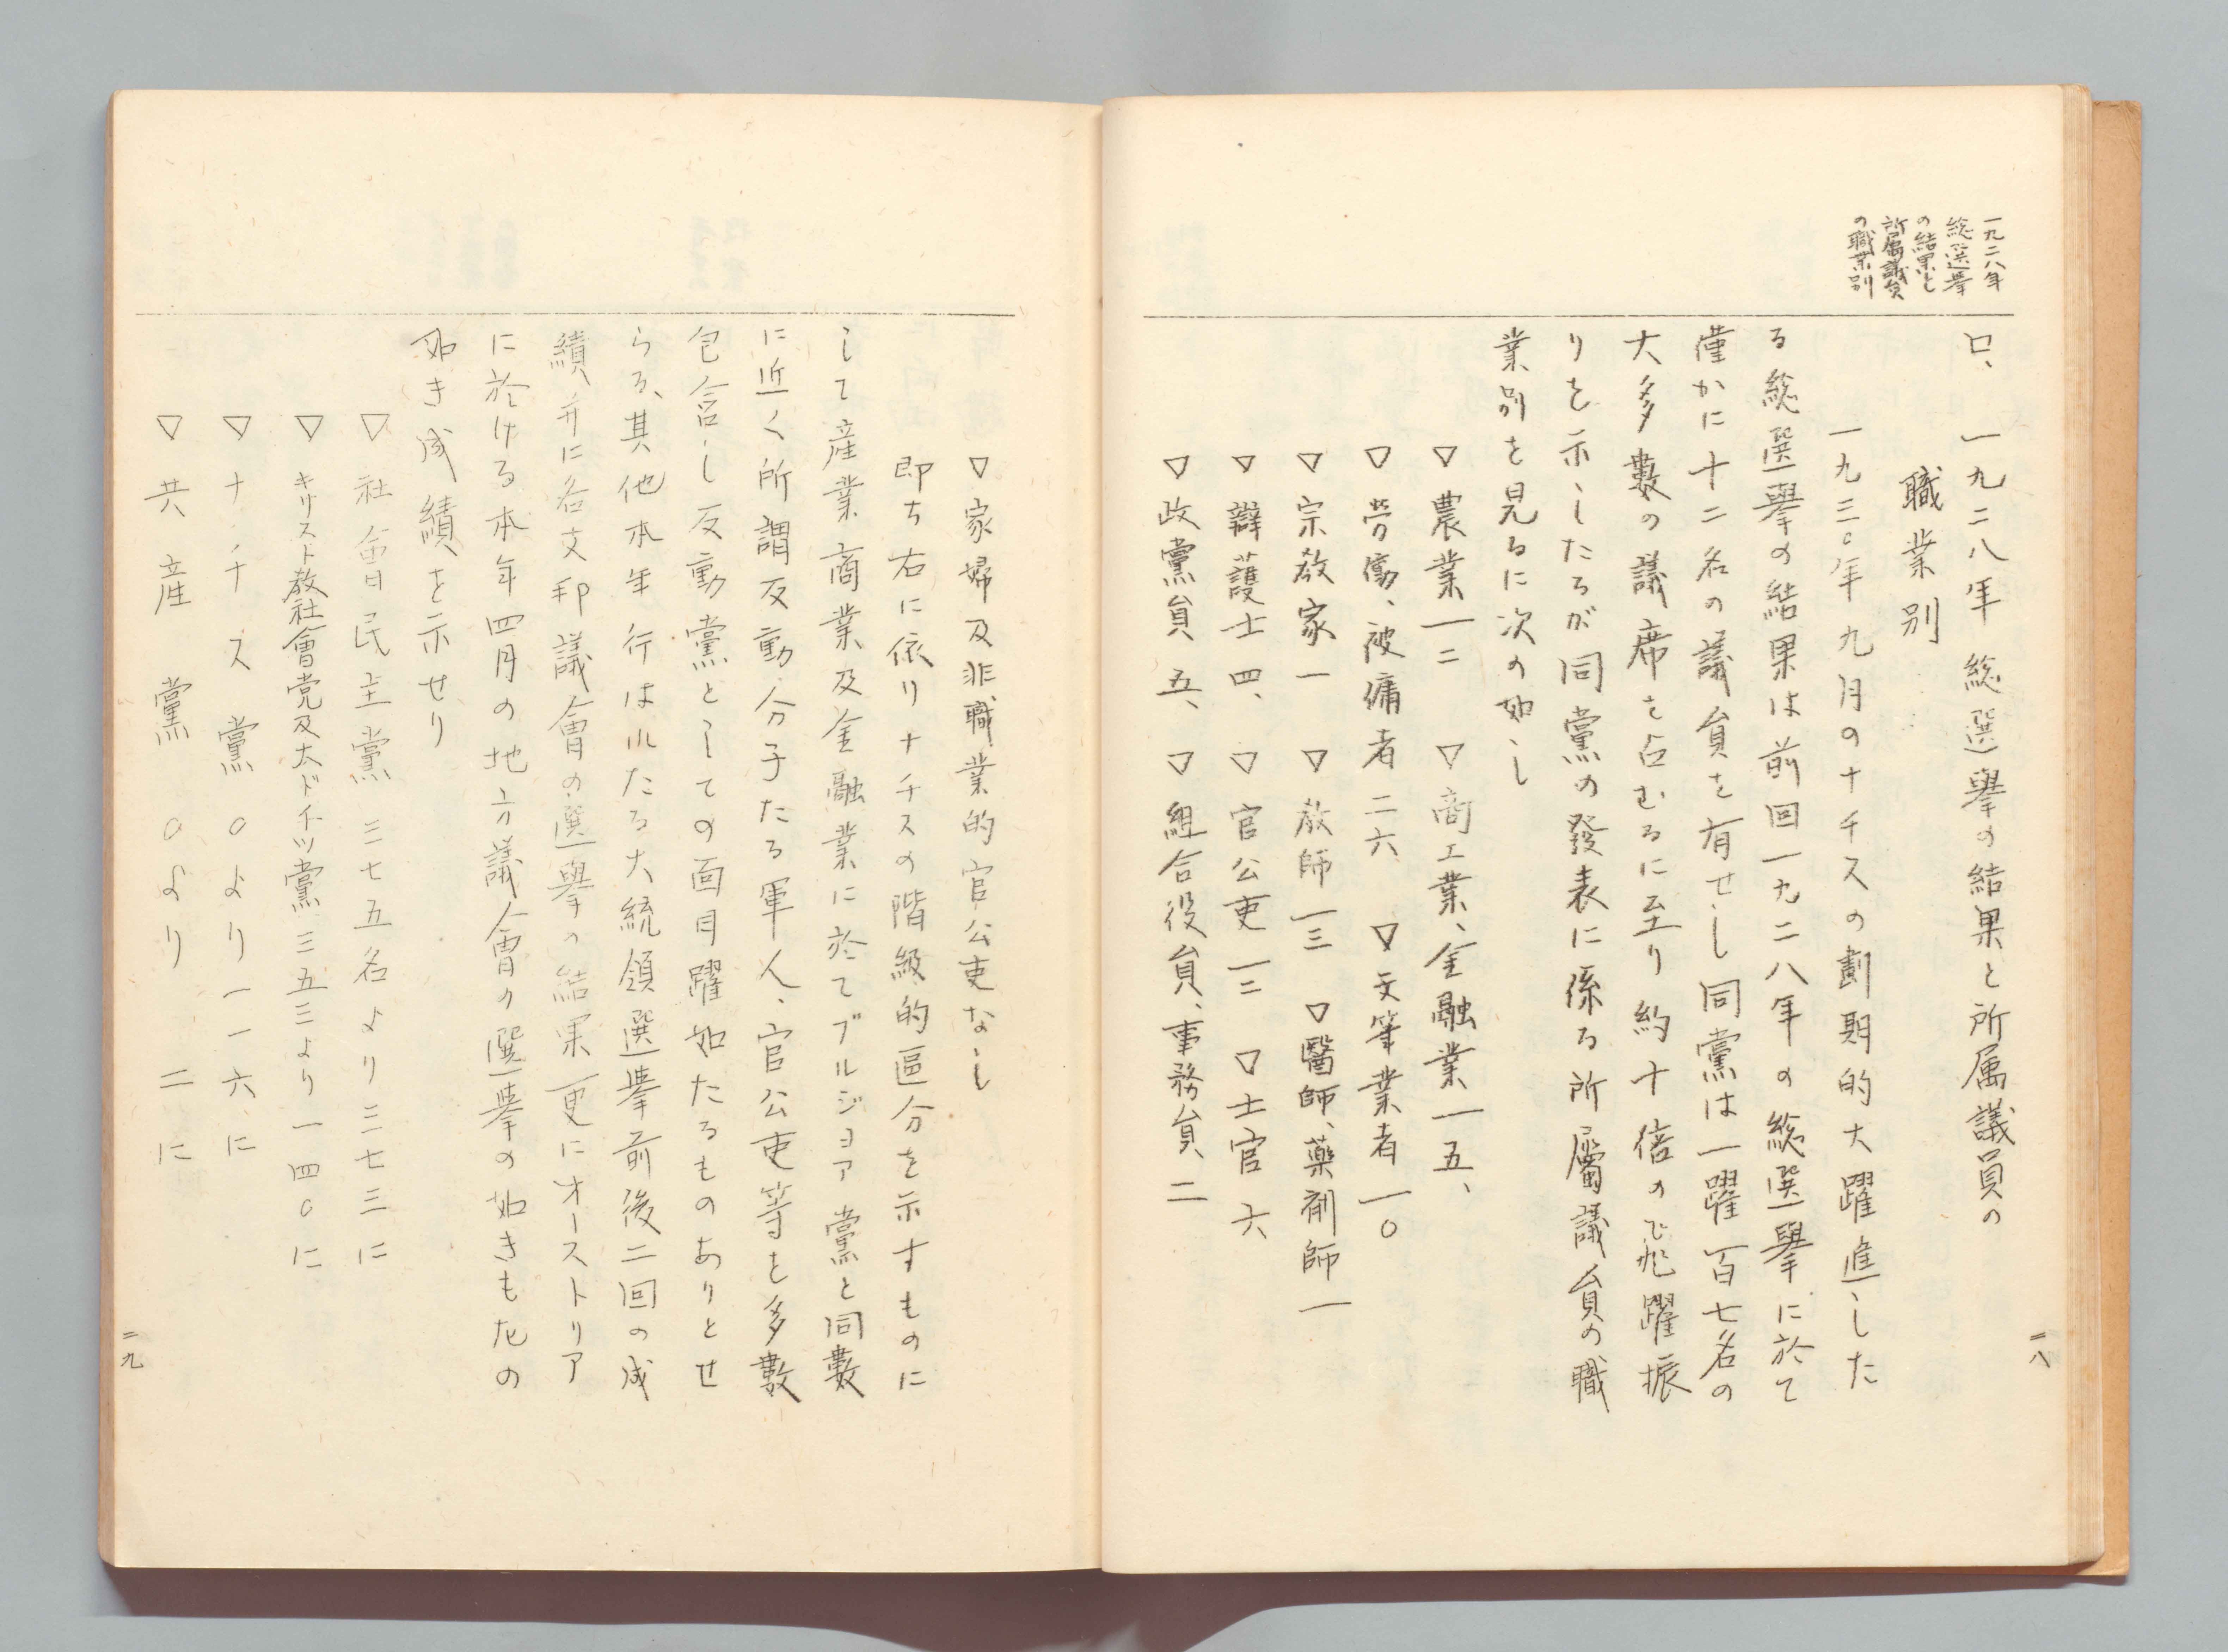 一九二八年
総選挙
の結果と
所属議員
の職業別
ロ、一九二八年総選挙の結果と所属議員の
職業別
一九三〇年九月のナチスの劃期的大躍進した
る総選挙の結果は前回一九二八年の総選挙に於て
僅かに十二名の議員を有せし同黨は一躍百七名の
大多數の議席を占むるに至り約十倍の飛躍振
りを示したるが同黨の發表に係る所屬議員の職
業別を見るに次の如し
▽農業一二 ▽商工業、金融業一五、
▽労働、被傭者二六 ▽文筆業者一〇
▽宗教家一 ▽教師一三 ▽醫師、薬剤師一
▽辯護士四、▽官公吏一二 ▽士官六
▽政黨員五、▽組合役員、事務員二
二八
▽家婦及非職業的官公吏なし
即ち右に依りナチスの階級的區分を示すものに
して産業商業及金融業に於てブルジョア黨と同數
に近く所謂反動分子たる軍人、官公吏等を多數
包含し反動黨としての面目躍如たるものありとせ
らる、其他本年行はれたる大統領選挙前後二回の成
績并に各支邦議會の選挙の結果更にオーストリア
に於ける本年四月の地方議會の選挙の如きもその
如き成績を示せり
▽社會民主黨 三七五名より三七三に
▽キリスト教社會党及大ドイツ黨 三五三より一四〇に
▽ナチス黨 〇より一一六に
▽共産黨 〇より二に
二九